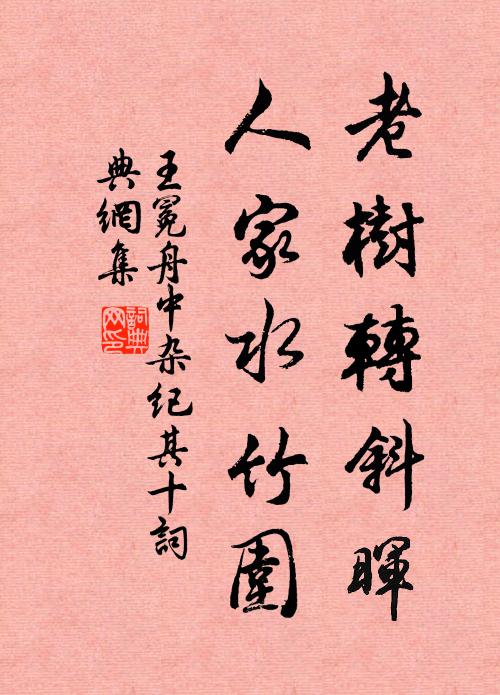 老樹轉斜暉
人家水竹圍
王冕舟中杂纪其十詞
典網集
詞典
网印